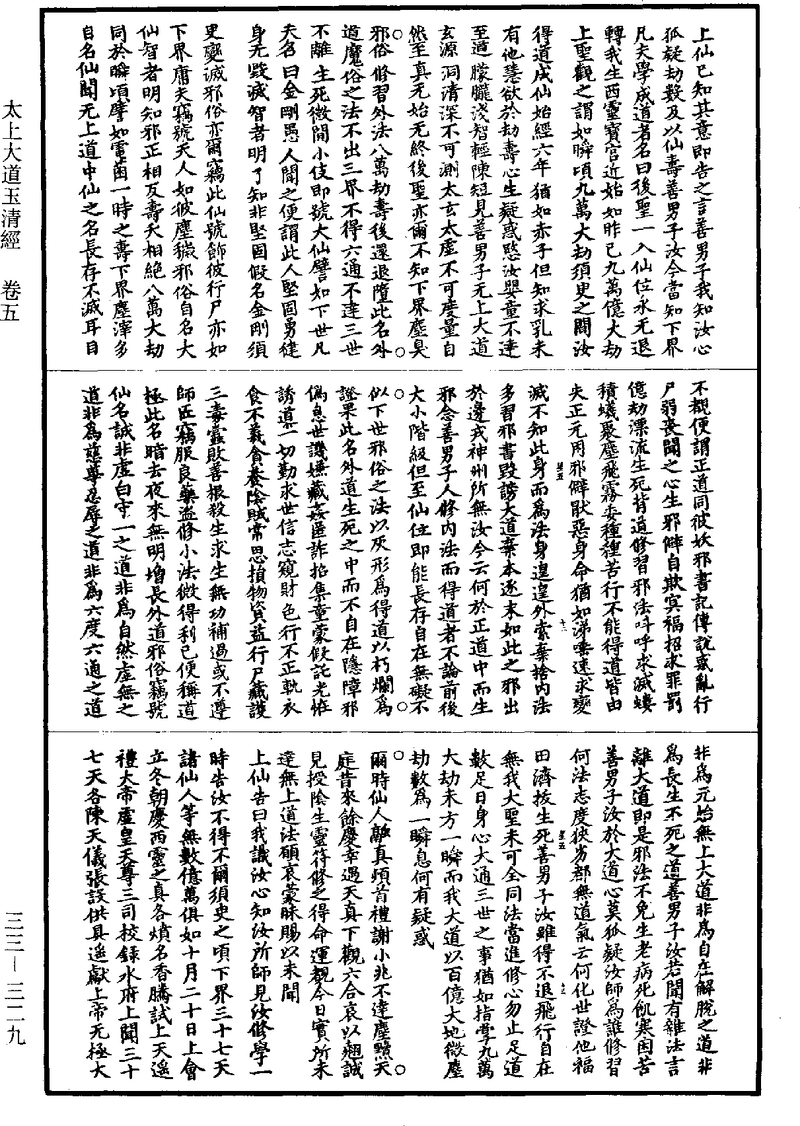 太上大道玉清經　卷五
三三—三二九
上仙已知其意即告之言善男子我知汝心
狐疑劫數及以仙壽善男子汝今當知下界
凡夫學成道者名曰後聖一入仙位永无退
轉我生西靈寶宮近始如昨已九萬億大劫
上聖觀之謂如瞬頃九萬大劫須臾之間汝
得道成仙始經六年猶如赤子但知求乳未
有他慧欲於劫壽心生疑惑愍汝嬰童不達
至道朦朧淺智輕陳短見善男子无上大道
玄源洞清深不可測太玄太虛不可度量自
然至真无始无終後聖亦爾不知下界塵臭
邪俗修習外法八萬劫壽後還退墮此名外
道魔俗之法不出三界不得六通不達三世
不離生死微閒小伎即號大仙譬如下世凡
夫名曰金剛愚人聞之便謂此人堅固勇健
身无毀滅智者明了知非堅固假名金剛須
臾變滅邪俗亦爾竊此仙號飾彼行尸亦如
下界庸夫竊號天人如彼塵穢邪俗自名大
仙智者明知邪正相瓦壽夭相絕八萬大劫
同於瞬頃譬如電齒一時之壽下界塵滓多
自名仙聞无上道中仙之名長存不滅耳目
不覩便謂正道同彼妖邪書記傳說惑亂行
尸弱喪聞之心生邪僻自欺冥福招求罪罰
億劫漂流生死背道修習邪法叫呼求滅螻
積蟻聚塵飛霧委種種苦行不能得道皆由
失正元用邪僻猒惡身命猶如涕唾速求變
滅不知此身而為法身遑遑外索棄捨內法
多習邪書毀謗大道棄本逐末如此之邪出
於邊戎神州所無汝今云何於正道中而生
邪念善男子人修內法而得道者不論前後
大小階級但至仙位即能長存自在無礙不
似下世邪俗之法以灰形為得道以朽爛為
證果此名外道生死之中而不自在隱障邪
偽息世譏嫌藏姦匿詐招集童蒙假託光恠
誘道一切勤求世信志窺財色行不正軌衣
食不義貪養陰賊常思損物資益行尸藏護
三毒靈敗善根殺生求生無功補過或不遵
師匠竊服良藥盜修小法微得利已便稱道
極此名暗去夜來無明增長外道邪俗竊號
仙名誠非虛白守一之道非為自然虛無之
道非為慈尊忍辱之道非為六度六通之道
非為元始無上大道非為自在解脫之道非
為長生不死之道善男子汝若聞有雜法言
離大道即是邪法不免生老病死飢寒困苦
善男子汝於大道心莫狐疑汝師為誰修習
何法志度彼劣鄙無道氣云何化世證他福
田濟拔生死善男子汝雖得不退飛行自在
無我大聖未可全同法當進修心勿止足道
數足日身心大通三世之事猶如指掌九萬
大劫未方一瞬而我大道以百億大地微塵
劫數為一瞬息何有疑惑
爾時仙人離真頫首禮謝小兆不達塵翳天
庭昔來餘慶幸遇天真下觀六合哀以翹誠
見授陰生靈符修之得命運覩今日實所未
達無上道法願哀蒙昧賜以未聞
上仙告曰我識汝心知汝所師見汝修學一
時告汝不得不爾須臾之頃下界三十七天
諸仙人等無數億萬俱如十月二十日上會
立冬朝慶西靈之真各燌名香騰試上天遥
禮大帝虛皇天尊三司校錄水府上聞三十
七天各陳天儀張設供具遥獻上帝无極大